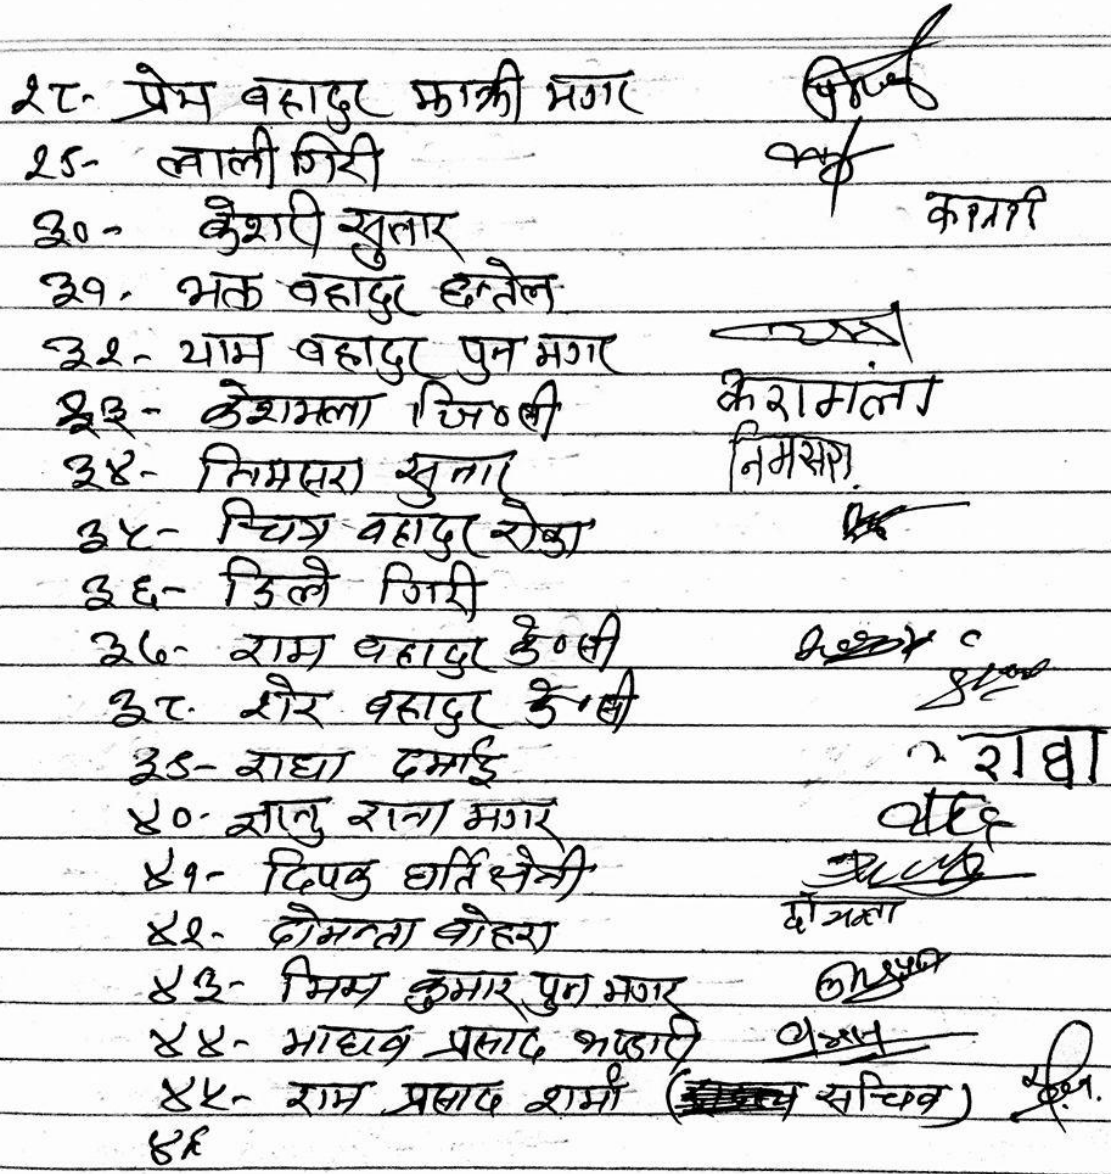 २८- प्रेम बहादुर झाक्री मगर
२९- लाली गिरी
३०- केशरी सुनार
३१- भक्त बहादुर छन्तेल
३२- याम बहादुर पुन मगर
३३- केशमला जि०सी केशमला
३४- निमसरा सुनार निमसरा
३५- चित्र बहादुर रोका
३६- डिले गिरी
३७- राम बहादुर के०सी
३८- शेर बहादुर के०सी
३९- राधा दमाई राधा
४०- सानु राना मगर
४१- दिपक घर्ति क्षेत्री
४२- दोमन्ता बोहरा
४३- भिम कुमार पुन मगर
४४- माधव प्रसाद भण्डारी
४५- राम प्रसाद शर्मा (सचिव)
४६